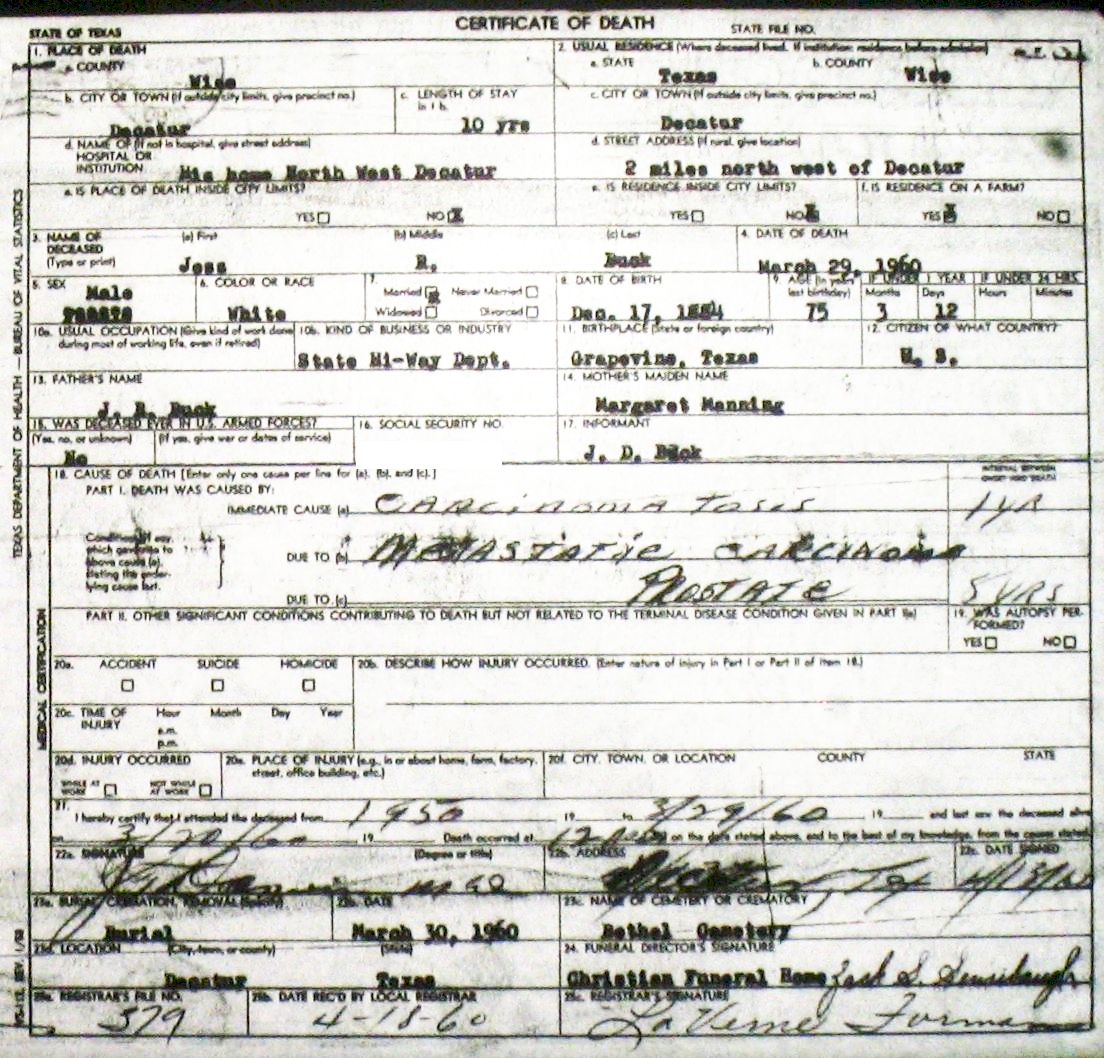 CERTIFICATE OF DEATH
STATE OF TEXAS
STATE FILE NO.
1. PLACE OF DEATH
a. COUNTY
Wise
2. USUAL RESIDENCE (Where deceased lived. If institution: residence before admission)
a. STATE
Texas
b. COUNTY
Wise
b. CITY OR TOWN (If outside city limits, give precinct no.)
Decatur
c. LENGTH OF STAY
in 1 b.
10 yrs
c. CITY OR TOWN (If outside city limits, give precinct no.)
Decatur
d. NAME OF (If not in hospital, give street address)
HOSPITAL OR
INSTITUTION
His home North West Decatur
d. STREET ADDRESS (If rural, give location)
2 miles north west of Decatur
e. IS PLACE OF DEATH INSIDE CITY LIMITS?
YES NO X
e. IS RESIDENCE INSIDE CITY LIMITS?
YES NO X
f. IS RESIDENCE ON A FARM?
YES X NO
3. NAME OF
DECEASED
(Type or print)
(a) First
Jess
(b) Middle
R.
(c) Last
Buck
4. DATE OF DEATH
March 29, 1960
5. SEX
Male
6. COLOR OR RACE
White
7.
Married X Never Married
Widowed Divorced
8. DATE OF BIRTH
Dec. 17, 1884
9. AGE (In years
last birthday)
75
IF UNDER 1 YEAR
Months Days
3 12
IF UNDER 24 HRS.
Hours Minutes
10a. USUAL OCCUPATION (Give kind of work done
during most of working life, even if retired)
10b. KIND OF BUSINESS OR INDUSTRY
State Hi-Way Dept.
11. BIRTHPLACE (State or foreign country)
Grapevine, Texas
12. CITIZEN OF WHAT COUNTRY?
U. S.
13. FATHER'S NAME
J. R. Buck
14. MOTHER'S MAIDEN NAME
Margaret Manning
15. WAS DECEASED EVER IN U.S. ARMED FORCES?
(Yes, no, or unknown) (If yes, give war or dates of service)
No
16. SOCIAL SECURITY NO.
17. INFORMANT
J. D. Buck
18. CAUSE OF DEATH [Enter only one cause per line for (a), (b), and (c).]
INTERVAL BETWEEN
ONSET AND DEATH
PART I. DEATH WAS CAUSED BY:
IMMEDIATE CAUSE (a) Carcinoma tosis
1 yr
Conditions, if any,
which gave rise to
above cause (a),
stating the under-
lying cause last.
DUE TO (b) Metastatic Carcinoma
DUE TO (c) Prostate
5 yrs
PART II. OTHER SIGNIFICANT CONDITIONS CONTRIBUTING TO DEATH BUT NOT RELATED TO THE TERMINAL DISEASE CONDITION GIVEN IN PART I(a)
19. WAS AUTOPSY PER-
FORMED?
YES NO
20a. ACCIDENT SUICIDE HOMICIDE
20b. DESCRIBE HOW INJURY OCCURRED. (Enter nature of injury in Part I or Part II of item 18.)
20c. TIME OF
INJURY
Hour Month Day Year
a.m.
p.m.
20d. INJURY OCCURRED
WHILE AT
WORK
NOT WHILE
AT WORK
20e. PLACE OF INJURY (e.g., in or about home, farm, factory,
street, office building, etc.)
20f. CITY, TOWN, OR LOCATION COUNTY STATE
21.
I hereby certify that I attended the deceased from 1950, 19 to 3/29/60, 19 and last saw the deceased alive
on 3/20/60, 19 Death occurred at on the date stated above, and to the best of my knowledge, from the causes stated.
22a. SIGNATURE (Degree or title)
22b. ADDRESS
Tex
22c. DATE SIGNED
4/13/60
23a. BURIAL, CREMATION, REMOVAL (Specify)
Burial
23b. DATE
March 30, 1960
23c. NAME OF CEMETERY OR CREMATORY
Bethel Cemetery
23d. LOCATION (City, town, or county) (State)
Decatur Texas
24. FUNERAL DIRECTOR'S SIGNATURE
Christian Funeral Home
25a. REGISTRAR'S FILE NO.
579
25b. DATE REC'D BY LOCAL REGISTRAR
4-18-60
25c. REGISTRAR'S SIGNATURE
La Verne
TEXAS DEPARTMENT OF HEALTH — BUREAU OF VITAL STATISTICS
MEDICAL CERTIFICATION
REV. 1/58